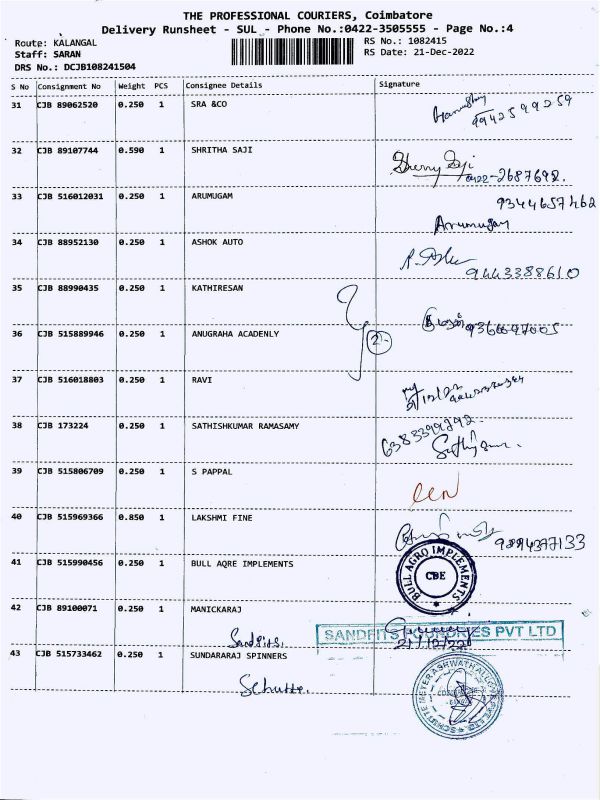 THE PROFESSIONAL COURIERS, Coimbatore
Delivery Runsheet - SUL - Phone No.:0422-3505555 - Page No.:4
Route: KALANGAL RS No.: 1082415
Staff: SARAN RS Date: 21-Dec-2022
DRS No.: DCJB108241504
S No Consignment No Weight PCS Consignee Details Signature
31 CJB 89062520 0.250 1 SRA &CO
9942599259
32 CJB 89107744 0.590 1 SHRITHA SAJI
Sherry Saji
0422-2687692.
33 CJB 516012031 0.250 1 ARUMUGAM 9344657462
Arumugam
34 CJB 88952130 0.250 1 ASHOK AUTO
9443388610
35 CJB 88990435 0.250 1 KATHIRESAN
36 CJB 515889946 0.250 1 ANUGRAHA ACADENLY
2
37 CJB 516018803 0.250 1 RAVI
38 CJB 173224 0.250 1 SATHISHKUMAR RAMASAMY
6383399292.
39 CJB 515806709 0.250 1 S PAPPAL
40 CJB 515969366 0.850 1 LAKSHMI FINE
9894377133
41 CJB 515990456 0.250 1 BULL AQRE IMPLEMENTS
BULL AGRO IMPLEMENTS
CBE
42 CJB 89100071 0.250 1 MANICKARAJ
Sandfits.
SANDFITS FOUNDRIES PVT LTD
43 CJB 515733462 0.250 1 SUNDARARAJ SPINNERS
Schutte.